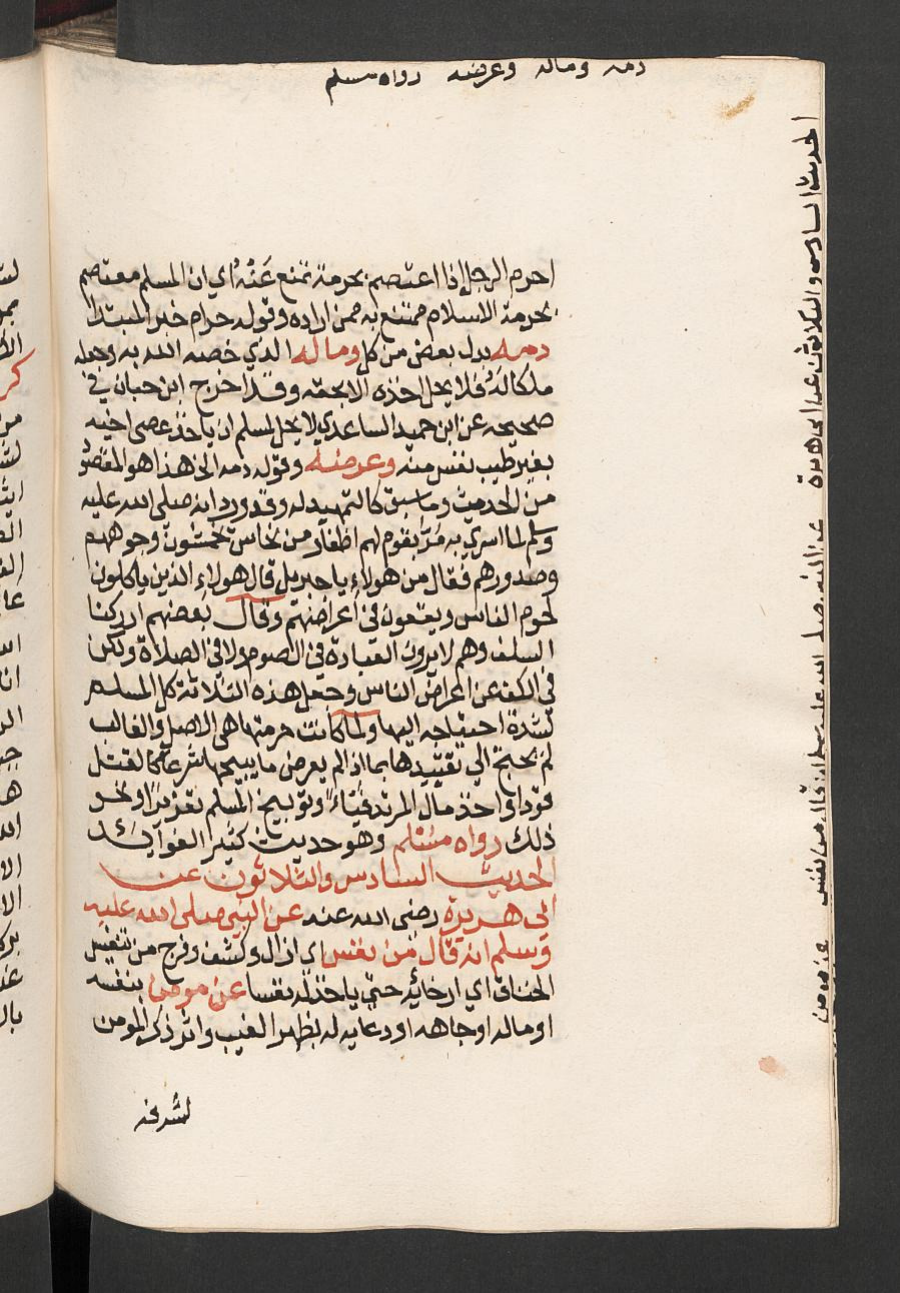 دمه وماله وعرضه رواه مسلم
الحديث السادس والثلاثون عن ابي هريرة عن النبي صلى الله عليه وسلم انه قال من نفس عن مومن
احرم الرجل اذا اعتصم بحرمة تمنع عَنْهُ اي ان المسلم معتصم
بحرمة الاسلام ممتنع به ممن اراده وقوله حرام خبر المبتدا
دمه بدل بعض من كل وماله الذي خصه الله به وجعله
ملكا لهُ فلا يحل اخذه الا بحقه وقد اخرج ابن حبان في
صحيحه عن ابن حميد الساعدي لا يحل لمسلم ان ياخذ عصى اخيه
بغير طيب نفس منه وعرضه وقوله دمه الخ هذا هو المقصود
من الحديث وما سبق كالتمهيد له وقد ورد انه صلى الله عليه
وسلم لما اسري به مُرّ بقوم لهم اظفار من نحاس تخمشون وجوههم
وصدورهم فقال من هولاء يا جبريل قال هولاء الذين ياكلون
لحوم الناس ويقعون في أعراضهم وقال بعضهم ادركنا
السلف وهم لا يرون العبادة في الصوم ولا في الصلاة ولكن
في الكف عن اعراض الناس وجعل هذه الثلاثة كل المسلم
لشدة احتياجه اليها ولما كانت حرمتها هي الاصل والغالب
لم يحتج الي تقييدها بما اذا لم يعرض ما يبيحها شرعا كالقتل
قودا واخذ مال المرتد فيئاء وتوبيخ المسلم تعزيرا ونحو
ذلك رواه مسلم وهو حديث كثير الفوائد
الحديث السادس والثلاثون عن
ابي هريرة رضي الله عنه عن النبي صلى الله عليه
وسلم انه قال من نفس اي ازال وكشف وفرج من تنفيس
الخناق اي ارخائه حتي ياخذ له نفسا عن مومن بنفسه
او ماله او جاهه او دعايه له بظهر الغيب واثر ذكر المومن
لشرفه